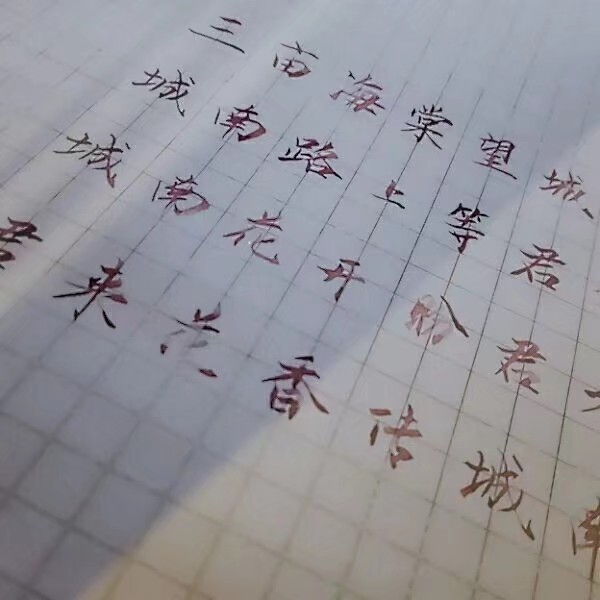 三南海棠望城、
城南路上等君
城南花开盼君
君来香城南